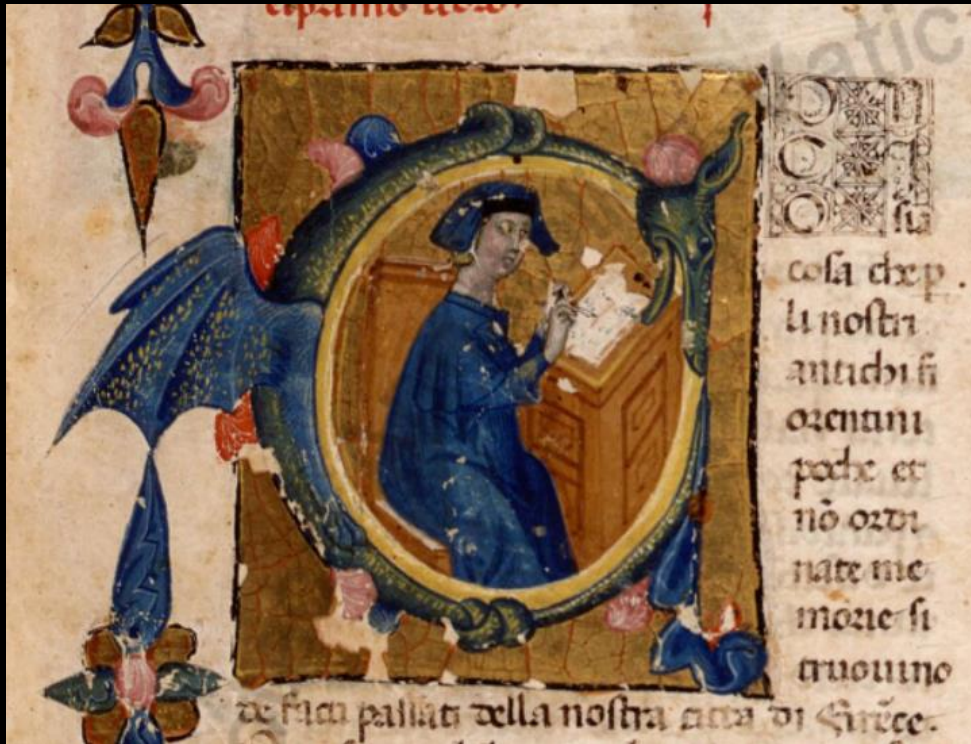 C
sia
cosa che p
li nostri
antichi fi
orentini
poche et
nõ ordi
nate me
morie si
truouino
de facti passati della nostra citta di Firẽce.